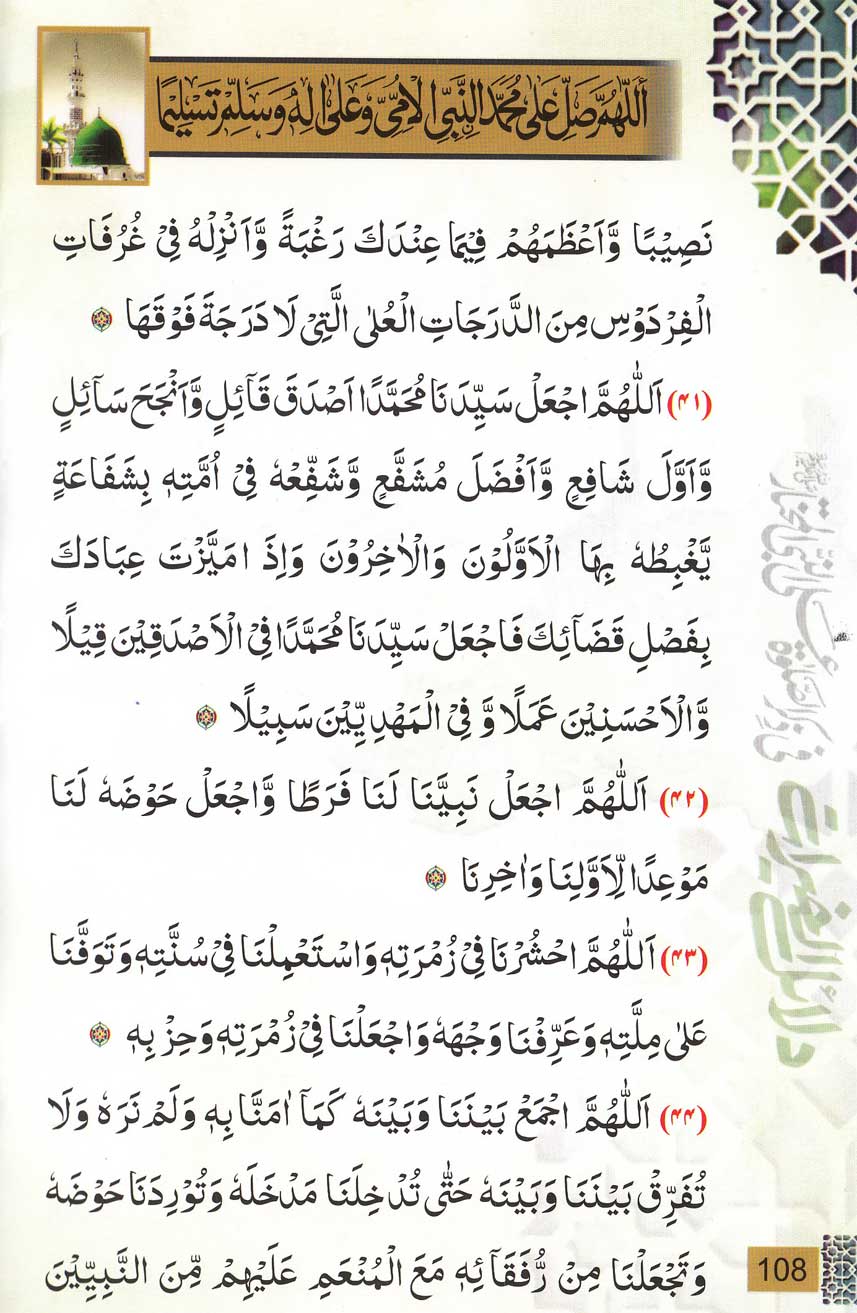 اَللّٰهُمَّ صَلِّ عَلٰى مُحَمَّدِ النَّبِيِّ الْاُمِّيِّ وَعَلٰى اٰلِهٖ وَسَلِّمْ تَسْلِيْمًا
نَصِيْبًا وَّاَعْظَمَهُمْ فِيْمَا عِنْدَكَ رَغْبَةً وَّاَنْزِلْهُ فِيْ غُرُفَاتِ
الْفِرْدَوْسِ مِنَ الدَّرَجَاتِ الْعُلٰى الَّتِيْ لَا دَرَجَةَ فَوْقَهَا
(۴۱) اَللّٰهُمَّ اجْعَلْ سَيِّدَنَا مُحَمَّدًا اَصْدَقَ قَآئِلٍ وَّاَنْجَحَ سَآئِلٍ
وَّاَوَّلَ شَافِعٍ وَّاَفْضَلَ مُشَفَّعٍ وَّشَفِّعْهُ فِيْ اُمَّتِهٖ بِشَفَاعَةٍ
يَّغْبِطُهٗ بِهَا الْاَوَّلُوْنَ وَالْاٰخِرُوْنَ وَاِذَ امَيَّزْتَ عِبَادَكَ
بِفَصْلِ قَضَآئِكَ فَاجْعَلْ سَيِّدَنَا مُحَمَّدًا فِيْ الْاَصْدَقِيْنَ قِيْلًا
وَّالْاَحْسَنِيْنَ عَمَلًا وَّ فِيْ الْمَهْدِيِّيْنَ سَبِيْلًا
(۴۲) اَللّٰهُمَّ اجْعَلْ نَبِيَّنَا لَنَا فَرَطًا وَّاجْعَلْ حَوْضَهٗ لَنَا
مَوْعِدًا لِّاَوَّلِنَا وَاٰخِرِنَا
(۴۳) اَللّٰهُمَّ احْشُرْنَا فِيْ زُمْرَتِهٖ وَاسْتَعْمِلْنَا فِيْ سُنَّتِهٖ وَتَوَفَّنَا
عَلٰى مِلَّتِهٖ وَعَرِّفْنَا وَجْهَهٗ وَاجْعَلْنَا فِيْ زُمْرَتِهٖ وَحِزْبِهٖ
(۴۴) اَللّٰهُمَّ اجْمَعْ بَيْنَنَا وَبَيْنَهٗ كَمَآ اٰمَنَّا بِهٖ وَلَمْ نَرَهٗ وَلَا
تُفَرِّقْ بَيْنَنَا وَبَيْنَهٗ حَتّٰى تُدْخِلَنَا مَدْخَلَهٗ وَتُوْرِدَنَا حَوْضَهٗ
وَتَجْعَلْنَا مِنْ رُّفَقَآئِهٖ مَعَ الْمُنْعَمِ عَلَيْهِمْ مِّنَ النَّبِيِّيْنَ
دلائل الخيرات
108